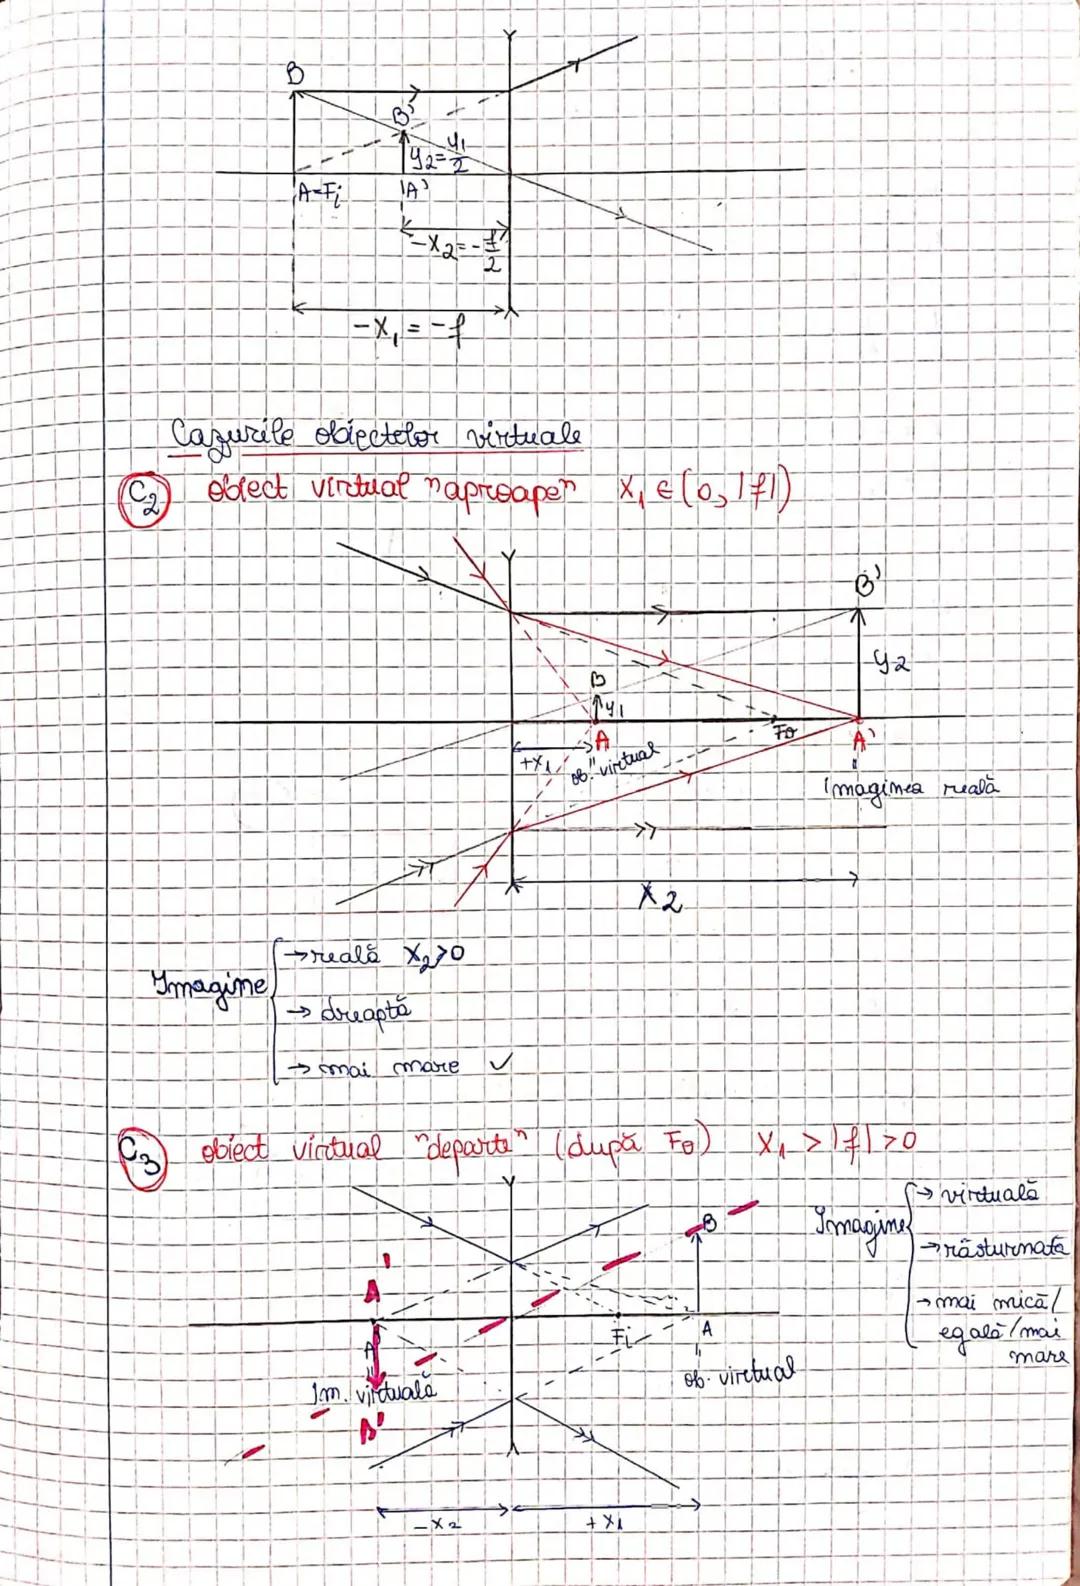 B
B'
y₂=y₁/2
A=Fᵢ
A'
-x₂=-f/2
-x₁=-f
Cazurile obiectelor virtuale
C₂ obiect virtual "aproape" x₁ ∈ (0, |f|)
B'
y₂
B
y₁
F₀
A
A'
+x₁
ob. virtual
Imaginea reală
x₂
Imagine
→ reală x₂>0
→ dreaptă
→ mai mare ✓
C₃ obiect virtual "departe" (după F₀) x₁ > |f| > 0
Imagine
→ virtuală
→ răsturnată
→ mai mică/
egală/mai
mare
B
A'
Fᵢ
A
A'
ob. virtual
Im. virtuală
B'
-x₂
+x₁